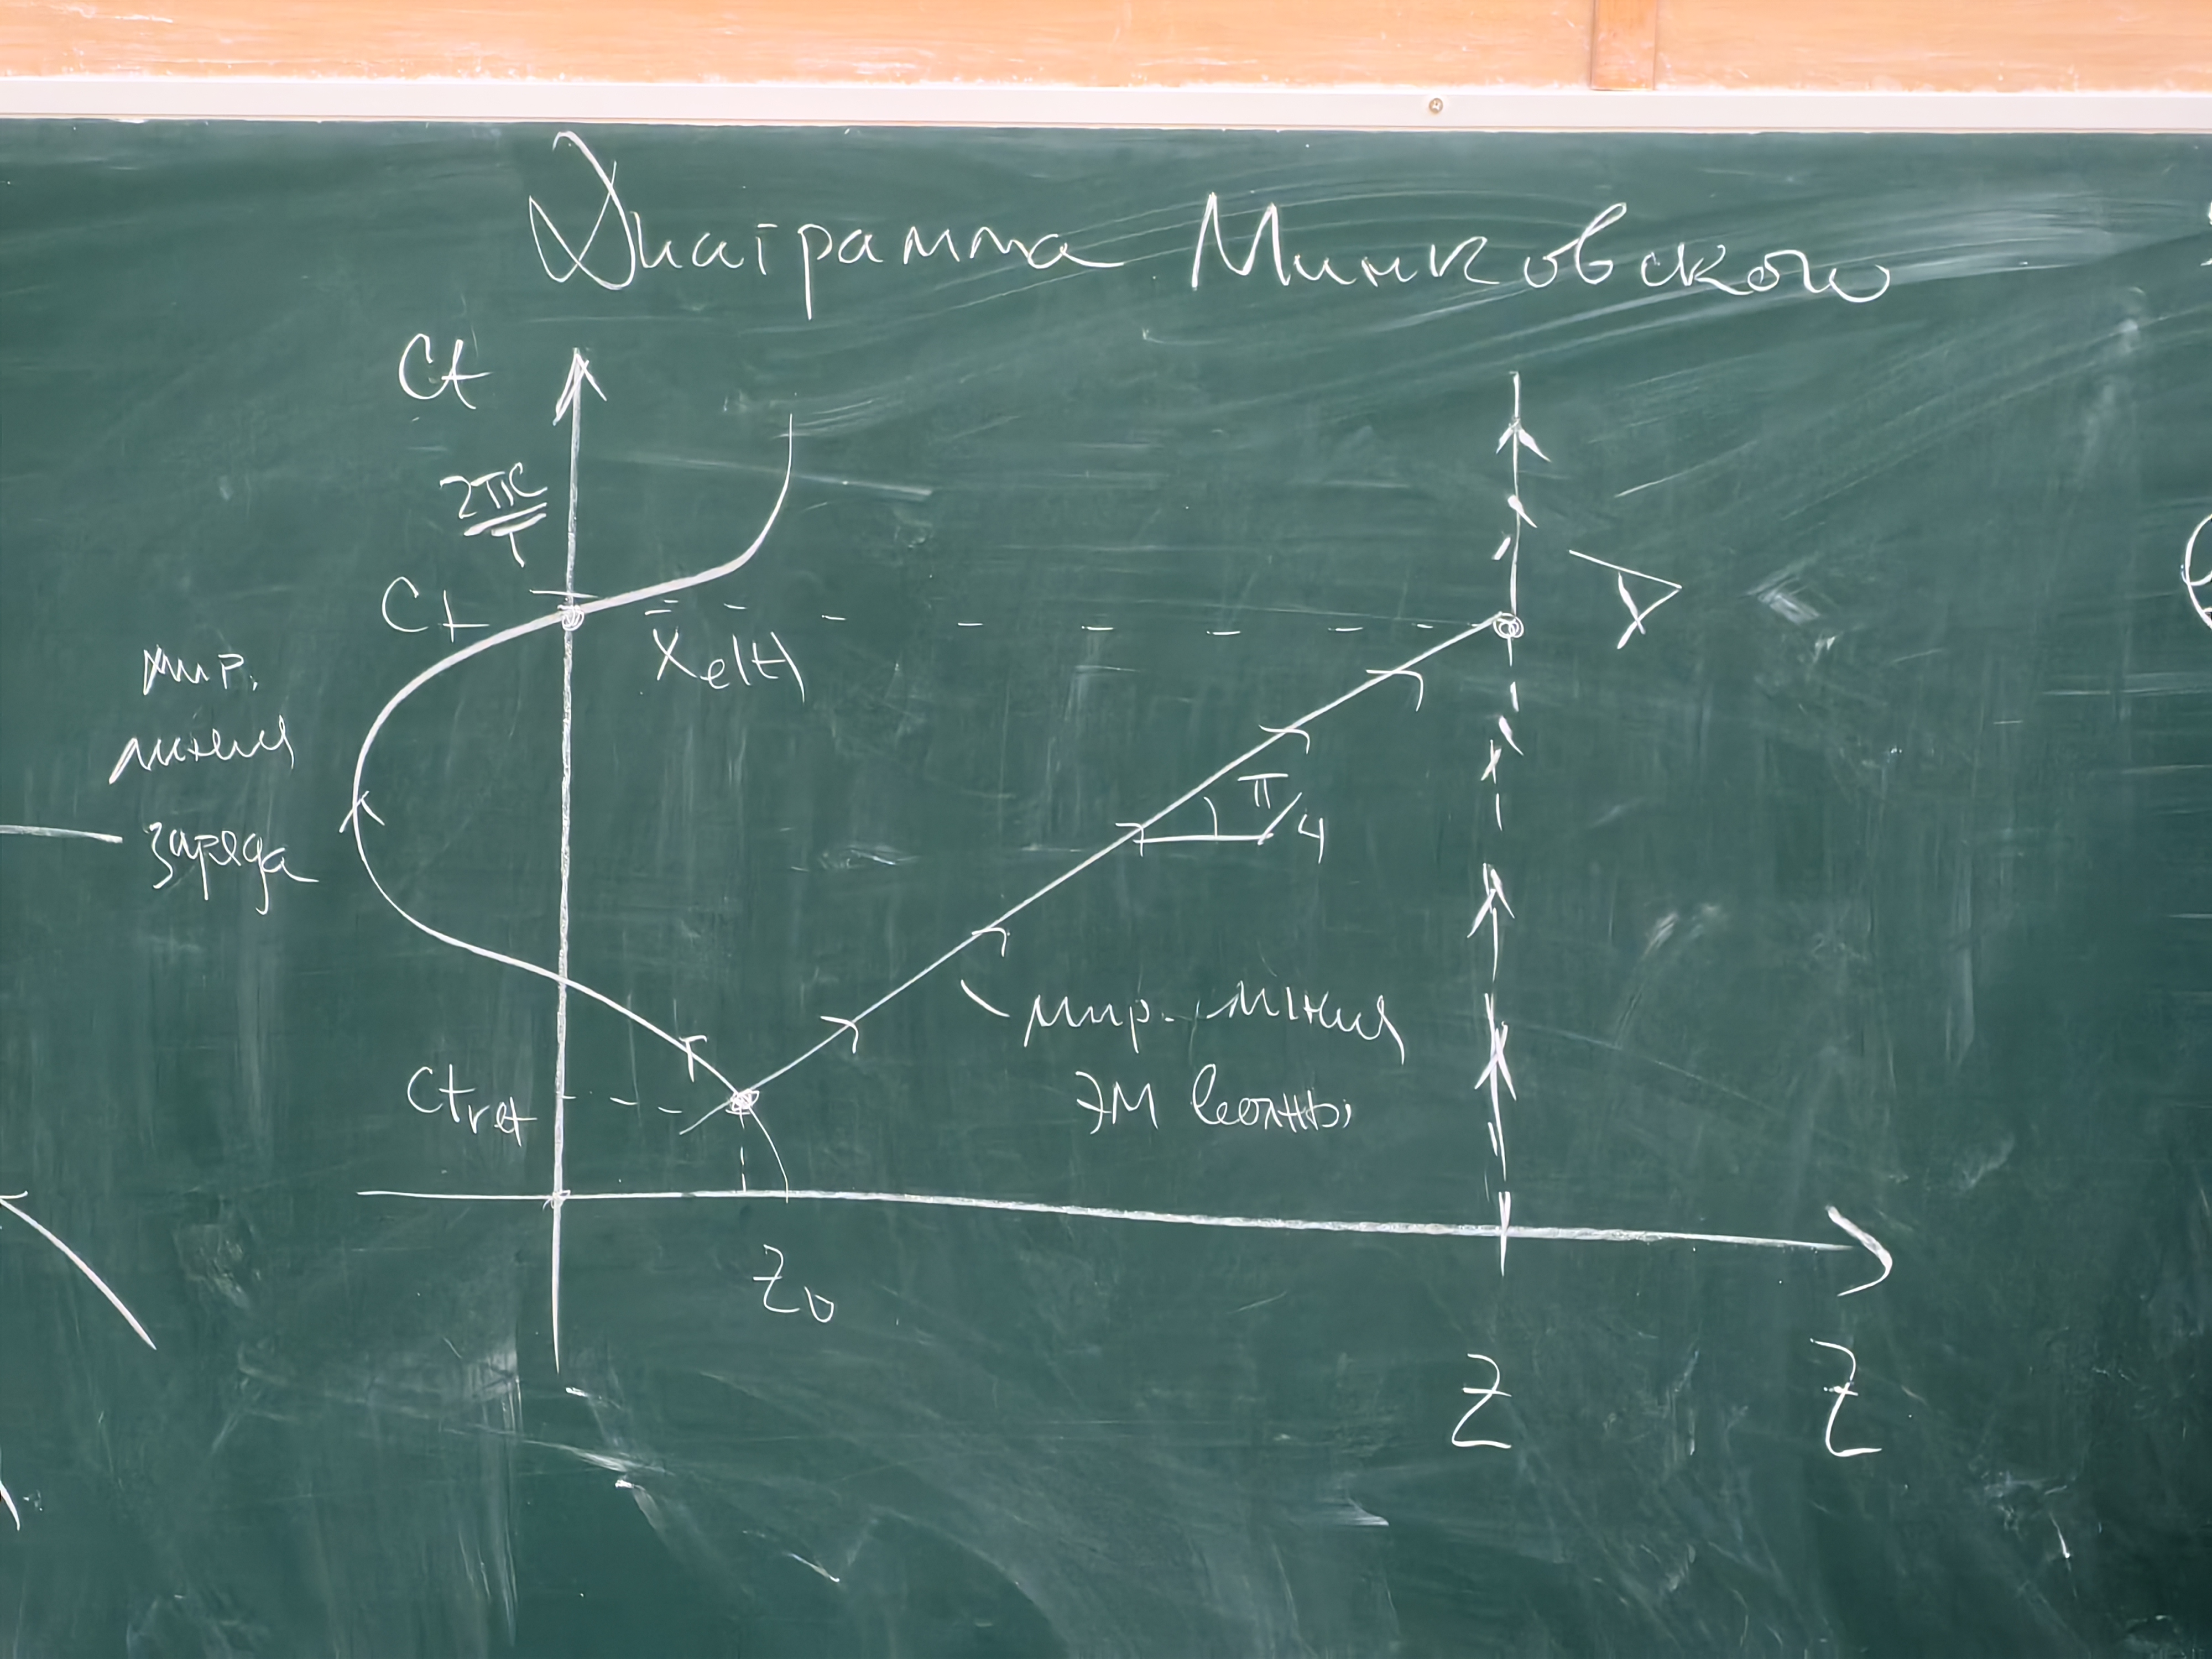 Диаграмма Минковского
Ct
2πc
T
Ct
xe(t)
мир.
линия
заряда
π
4
мир. линия
ЭМ волны
ctret
z0
z
z